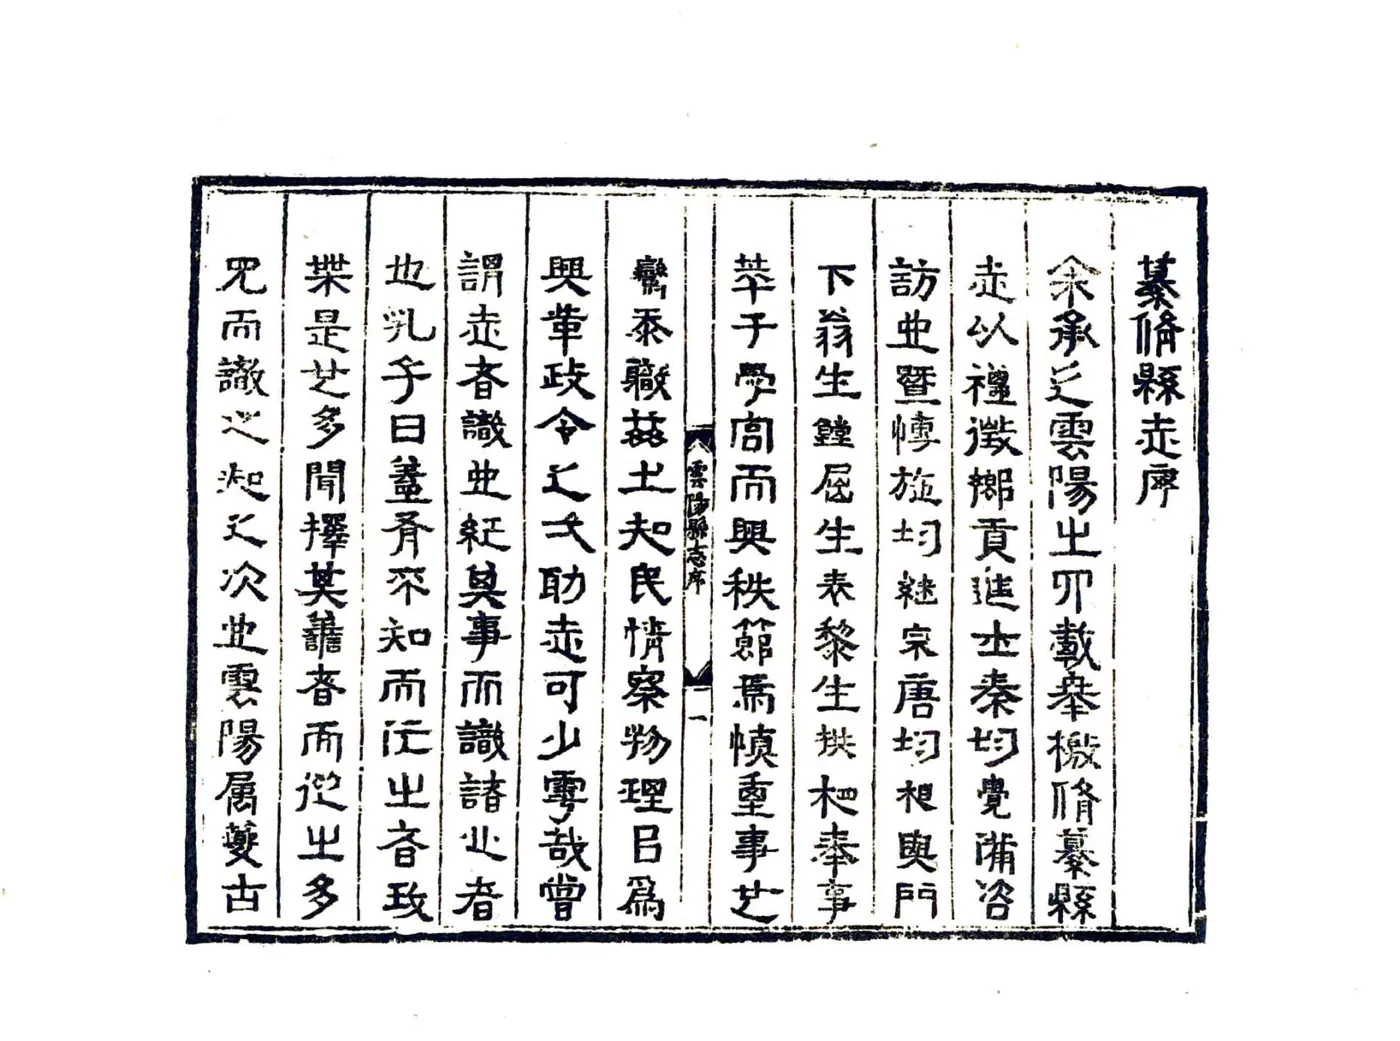 纂脩縣志序
余承乏雲陽之四載舉檄脩纂縣
志以禮徵鄉貢進士秦均覺備咨
訪也暨博施均繼宗唐均相與門
下翁生鏜屈生表黎生拱杷奉事
萃于學宮而興秩節焉慎重事也
雲陽縣志序
一
鸞忝職茲土知民情察物理以為
興革政令之弌助志可少雩哉嘗
謂志者識也紀其事而識諸心者
也孔子曰蓋有不知而作之者我
無是也多聞擇其善者而從之多
見而識之知之次也雲陽属夔古